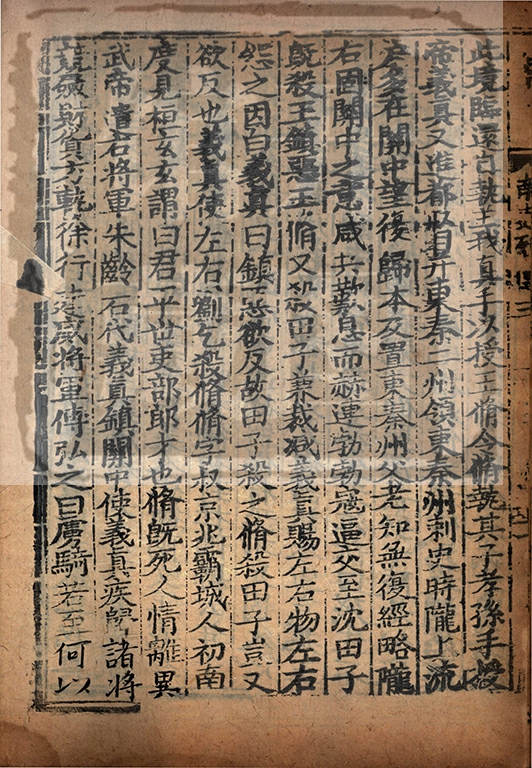 此境臨還自執義真手以授王脩令脩執其子孝孫手授
帝義真又進都督并東秦二州領東秦州刺史時隴上流
户多在關中望復歸本及置東秦州父老知無復經略隴
右固關中之意咸共歎息而赫連勃勃寇逼交至沈田子
既殺王鎮惡王脩又殺田子兼裁减義真賜左右物左右
怨之因白義真曰鎮惡欲反故田子殺之脩殺田子豈又
欲反也義真使左右劉乞殺脩脩字叔京兆霸城人初南
度見桓玄玄謂曰君平世吏部郎才也脩既死人情離異
武帝遣右將軍朱齡石代義真鎮關中使義真疾歸諸將
競斂財貨方軌徐行建威將軍傅弘之曰虜騎若至何以